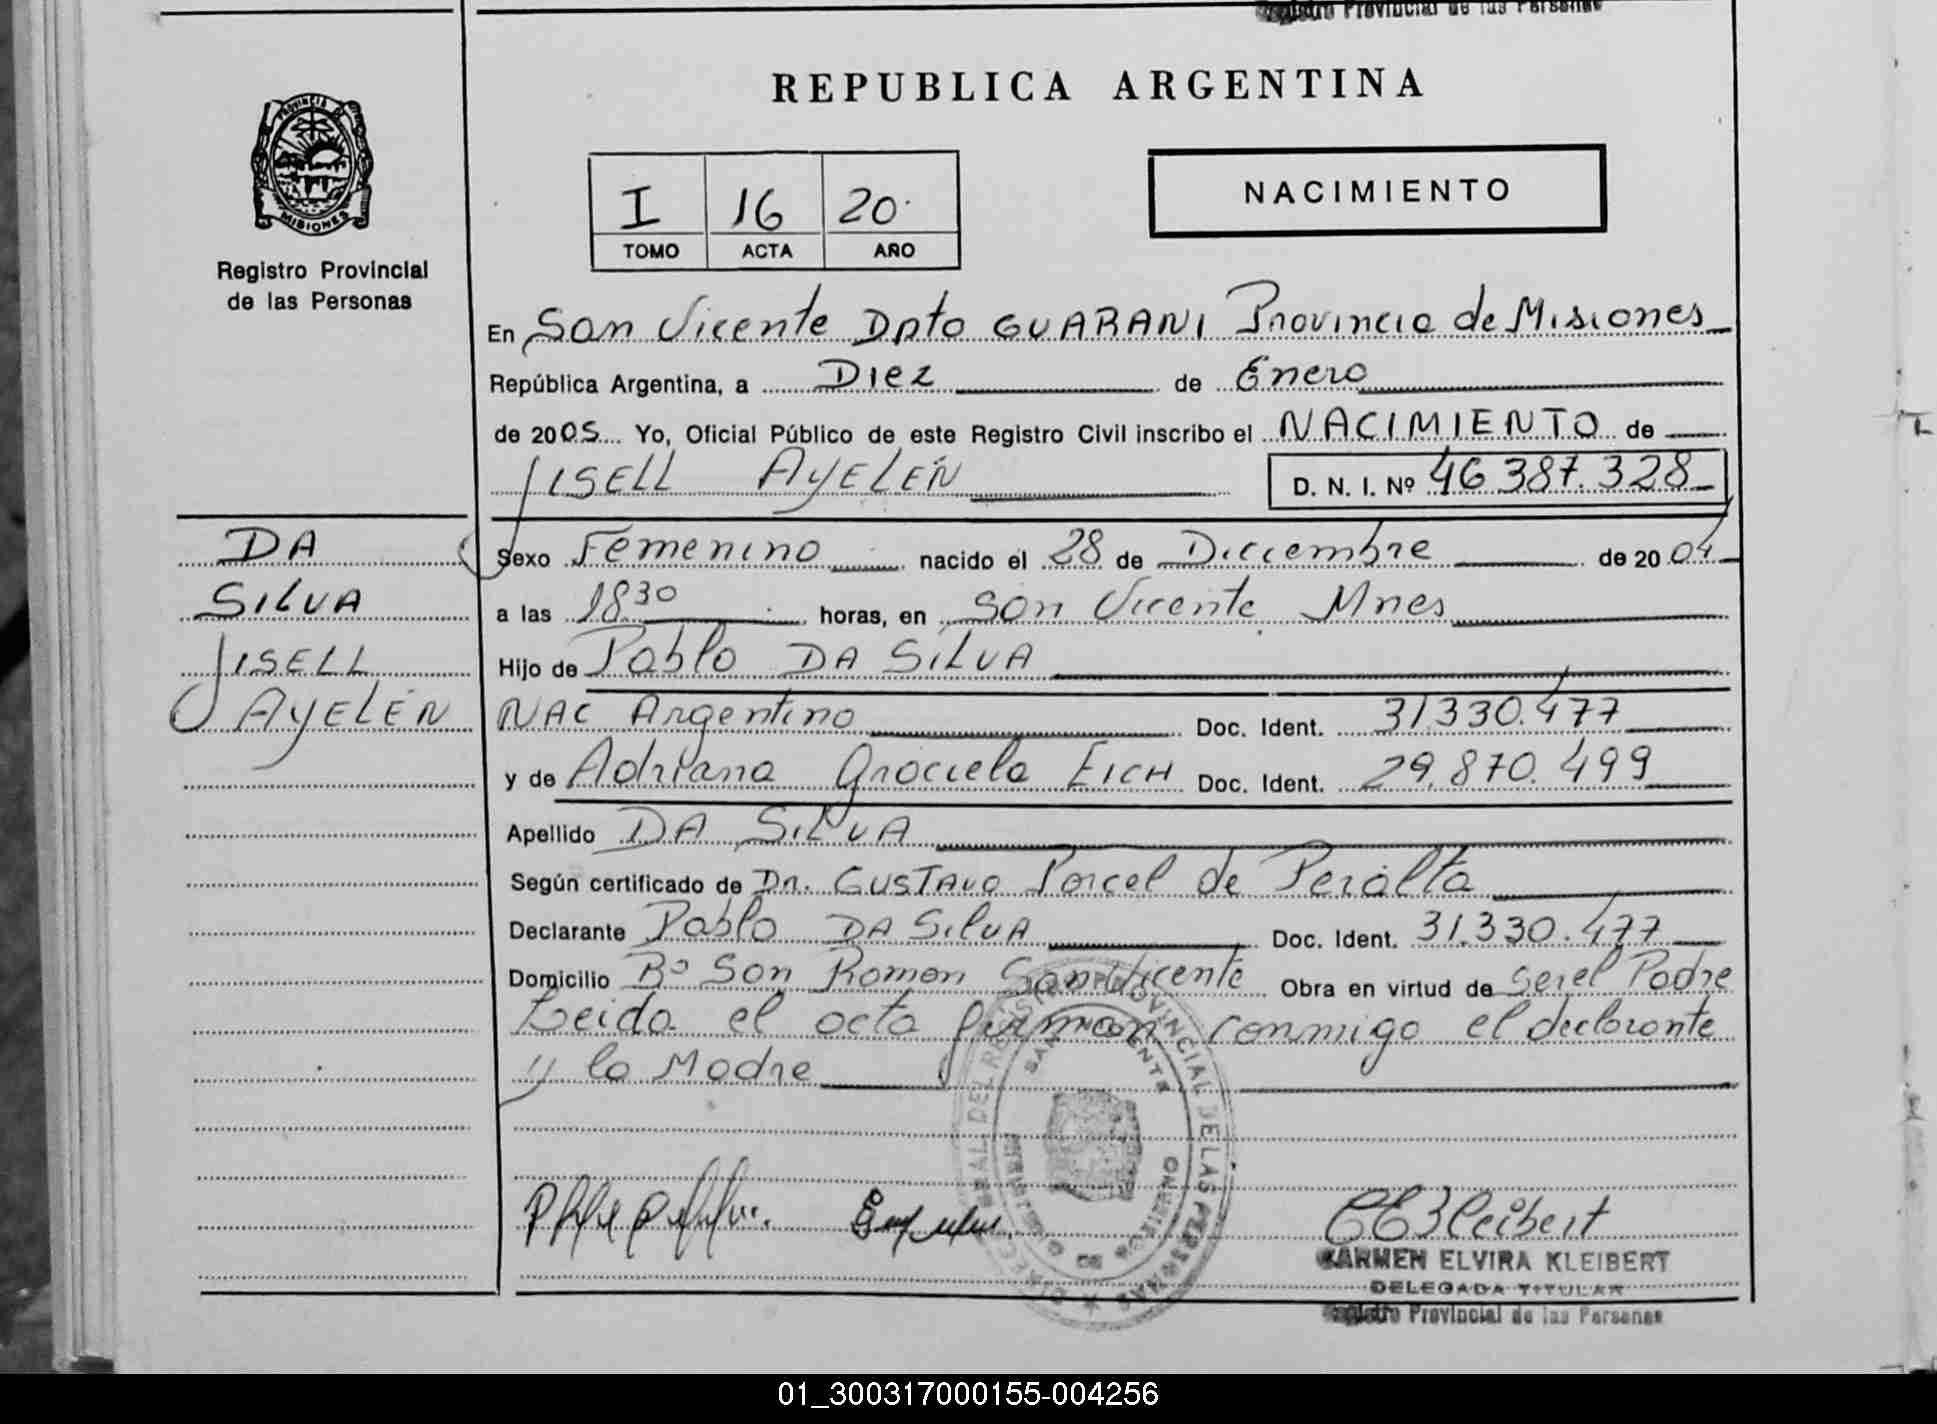 Registro Provincial de las Personas
REPUBLICA ARGENTINA
PROVINCIA DE
MISIONES
Registro Provincial
de las Personas
I 16 20
TOMO ACTA AÑO
NACIMIENTO
En San Vicente Dpto GUARANI Provincia de Misiones
República Argentina, a Diez de Enero
de 2005 Yo, Oficial Público de este Registro Civil inscribo el NACIMIENTO de
JISELL AYELÉN D. N. I. Nº 46.387.328
DA
SILVA
JISELL
AYELÉN
Sexo Femenino nacido el 28 de Diciembre de 2004
a las 18 30 horas, en San Vicente Mnes
Hijo de Pablo DA SILVA
NAC Argentino Doc. Ident. 31.330.477
y de Adriana Graciela EICH Doc. Ident. 29.870.499
Apellido DA SILVA
Según certificado de Dr. GUSTAVO Porcel de Peralta
Declarante Pablo DA SILVA Doc. Ident. 31.330.477
Domicilio Bº San Ramon San Vicente Obra en virtud de ser el Padre
Leida el acta firman conmigo el declarante
y la Madre
CEKleibert
CARMEN ELVIRA KLEIBERT
DELEGADA TITULAR
Registro Provincial de las Personas
01_300317000155-004256